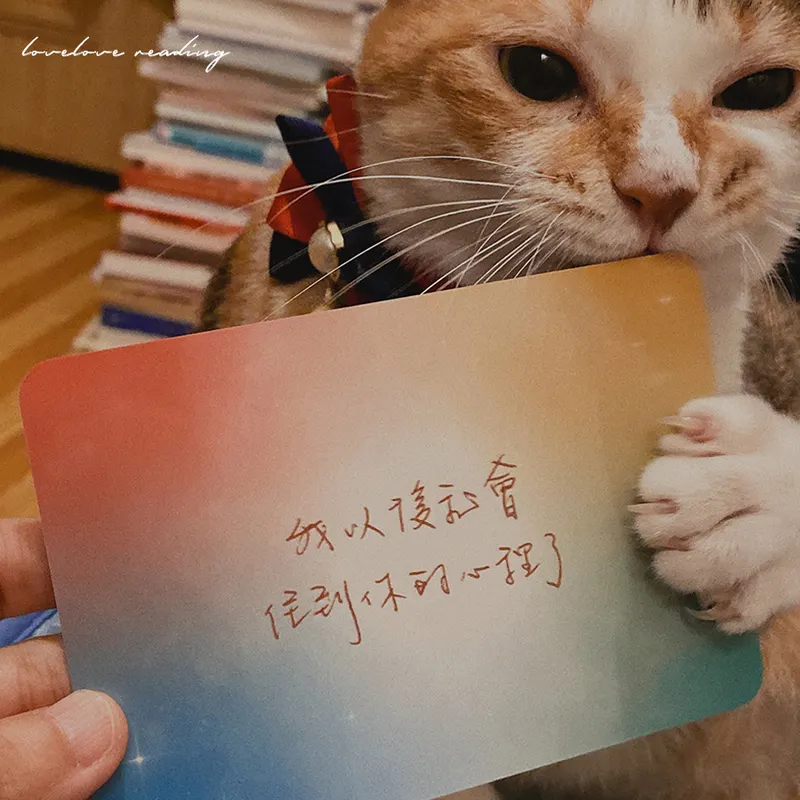 lovelove reading
我以後就會
住到你的心裡了